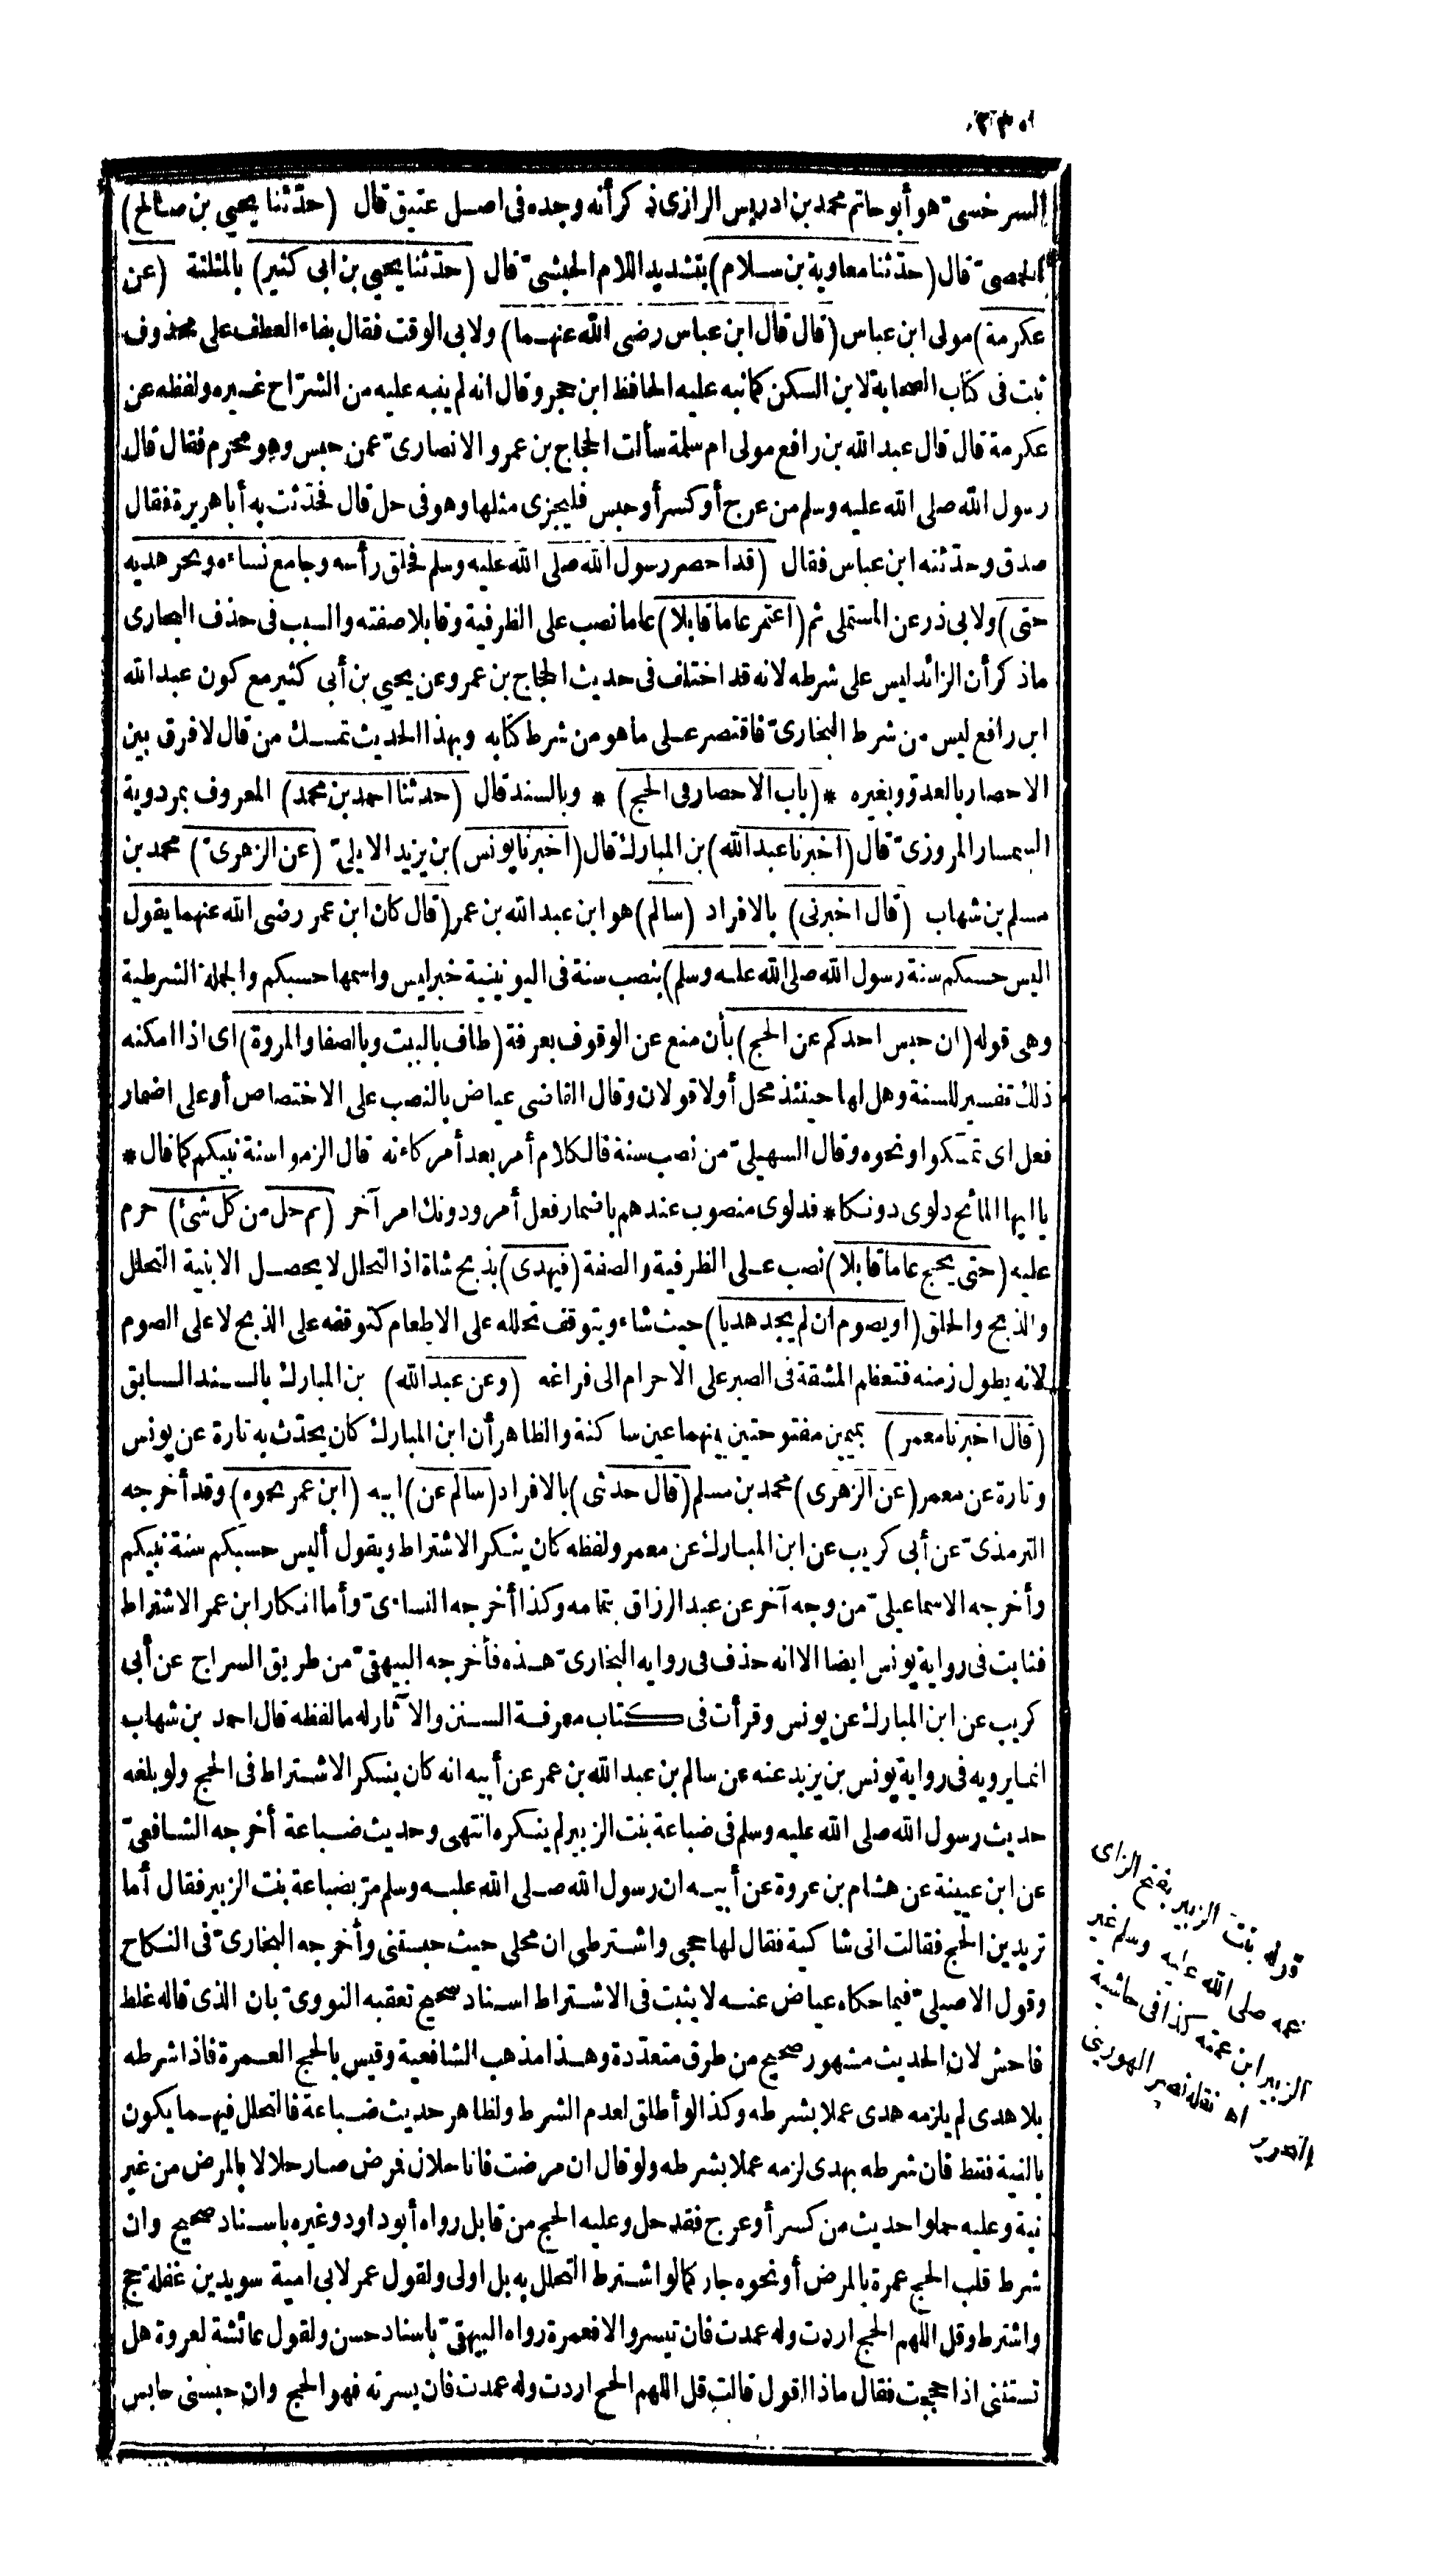 السرخسى هو أبو حاتم محمد بن ادريس الرازى ذكر أنه وجده فى اصل عتيق قال (حدّثنا يحيى بن صالح)
الحمصىّ قال (حدّثنا معاوية بن سلام) بتشديد اللام الحبشىّ قال (حدّثنا يحيى بن ابى كثير) بالمثلثة (عن
عكرمة) مولى ابن عباس (قال قال ابن عباس رضى الله عنهما) ولابى الوقت فقال بفاء العطف على محذوف
ثبت فى كتاب الصحابة لابن السكن كما نبه عليه الحافظ ابن حجر وقال انه لم ينبه عليه من الشرّاح غيره ولفظه عن
عكرمة قال قال عبد الله بن رافع مولى ام سلمة سألت الحجاج بن عمرو الانصارىّ عمن حبس وهو محرم فقال قال
رسول الله صلى الله عليه وسلم من عرج أو كسر أو حبس فليجزى مثلها وهو فى حل قال فحدّثت به أبا هريرة فقال
صدق وحدّثته ابن عباس فقال (قد احصر رسول الله صلى الله عليه وسلم فحلق رأسه وجامع نساءه ونحر هديه
حتى) ولابى ذر عن المستملى ثم (اعتمر عاما قابلا) عاما نصب على الظرفية وقابلا صفته والسبب فى حذف البخارى
ما ذكر أن الزائد ليس على شرطه لانه قد اختلف فى حديث الحجاج بن عمرو عن يحيى بن أبى كثير مع كون عبد الله
ابن رافع ليس من شرط البخارىّ فاقتصر على ما هو من شرط كتابه وبهذا الحديث تمسك من قال لا فرق بين
الاحصار بالعدوّ وبغيره * (باب الاحصار فى الحج) * وبالسند قال (حدثنا احمد بن محمد) المعروف بمردوية
السمسار المروزىّ قال (اخبرنا عبد الله) بن المبارك قال (اخبرنا يونس) بن يزيد الايلىّ (عن الزهرىّ) محمد بن
مسلم بن شهاب (قال اخبرنى) بالافراد (سالم) هو ابن عبد الله بن عمر (قال كان ابن عمر رضى الله عنهما يقول
اليس حسبكم سنة رسول الله صلى الله عليه وسلم) بنصب سنة فى اليونينية خبر ليس واسمها حسبكم والجملة الشرطية
وهى قوله (ان حبس احدكم عن الحج) بأن منع عن الوقوف بعرفة (طاف بالبيت وبالصفا والمروة) اى اذا امكنه
ذلك تفسير للسنة وهل لها حينئذ محل أو لا قولان وقال القاضى عياض بالنصب على الاختصاص أو على اضمار
فعل اى تمسكوا ونحوه وقال السهيلىّ من نصب سنة فالكلام أمر بعد أمر كانه قال الزموا سنة نبيكم كما قال *
يا ايها المائح دلوى دونكا * فدلوى منصوب عندهم باضمار فعل أمر ودونك امر آخر (ثم حل من كل شئ) حرم
عليه (حتى يحج عاما قابلا) نصب على الظرفية والصفة (فيهدى) بذبح شاة اذ التحلل لا يحصل الا بنية التحلل
والذبح والحلق (او يصوم ان لم يجد هديا) حيث شاء ويتوقف تحلله على الاطعام كتوقفه على الذبح لا على الصوم
لانه يطول زمنه فتعظم المشقة فى الصبر على الاحرام الى فراغه (وعن عبد الله) بن المبارك بالسند السابق
(قال اخبرنا معمر) بميمين مفتوحتين بينهما عين ساكنة والظاهر أن ابن المبارك كان يحدّث به تارة عن يونس
وتارة عن معمر (عن الزهرى) محمد بن مسلم (قال حدثنى) بالافراد (سالم عن) ابيه (ابن عمر نحوه) وقد أخرجه
الترمذىّ عن أبى كريب عن ابن المبارك عن معمر ولفظه كان ينكر الاشتراط ويقول أليس حسبكم سنة نبيكم
وأخرجه الاسماعيلىّ من وجه آخر عن عبد الرزاق بتمامه وكذا أخرجه النساءىّ وأما انكار ابن عمر الاشتراط
فثابت فى رواية يونس ايضا الا انه حذف فى روايه البخارىّ هذه فأخرجه البيهقىّ من طريق السراج عن أبى
كريب عن ابن المبارك عن يونس وقرأت فى كتاب معرفة السنن والآثار له ما لفظه قال احمد بن شهاب
انما يرويه فى رواية يونس بن يزيد عنه عن سالم بن عبد الله بن عمر عن أبيه انه كان ينكر الاشتراط فى الحج ولو بلغه
حديث رسول الله صلى الله عليه وسلم فى ضباعة بنت الزبير لم ينكره انتهى وحديث ضباعة أخرجه الشافعىّ
عن ابن عيينة عن هشام بن عروة عن أبيه ان رسول الله صلى الله عليه وسلم مرّ بضباعة بنت الزبير فقال أما
تريدين الحج فقالت انى شاكية فقال لها حجى واشترطى ان محلى حيث حبستنى وأخرجه البخارىّ فى النكاح
وقول الاصيلىّ فيما حكاه عياض عنه لا يثبت فى الاشتراط اسناد صحيح تعقبه النووىّ بان الذى قاله غلط
فاحش لان الحديث مشهور صحيح من طرق متعدّدة وهذا مذهب الشافعية وقيس بالحج العمرة فاذا شرطه
بلا هدى لم يلزمه هدى عملا بشرطه وكذا لو أطلق لعدم الشرط ولظاهر حديث ضباعة فالتحلل فيهما يكون
بالنية فقط فان شرطه بهدى لزمه عملا بشرطه ولو قال ان مرضت فانا حلان فمرض صار حلالا بالمرض من غير
نية وعليه حملوا حديث من كسر أو عرج فقد حل وعليه الحج من قابل رواه أبو داود وغيره باسناد صحيح وان
شرط قلب الحج عمرة بالمرض أو نحوه جاز كما لو اشترط التحلل به بل اولى ولقول عمر لابى امية سويد بن غفلة حج
واشترط وقل اللهم الحج اردت وله عمدت فان تيسر والا فعمرة رواه البيهقىّ باسناد حسن ولقول عائشة لعروة هل
تستثنى اذا حججت فقال ماذا اقول قالت قل اللهم الحج اردت وله عمدت فان يسرته فهو الحج وان حبسنى حابس
قوله بنت الزبير بفتح الزاى
عمه صلى الله عليه وسلم غير
الزبير ابن عمته كذا فى حاشية
التحرير اه نقله نصر الهورينى